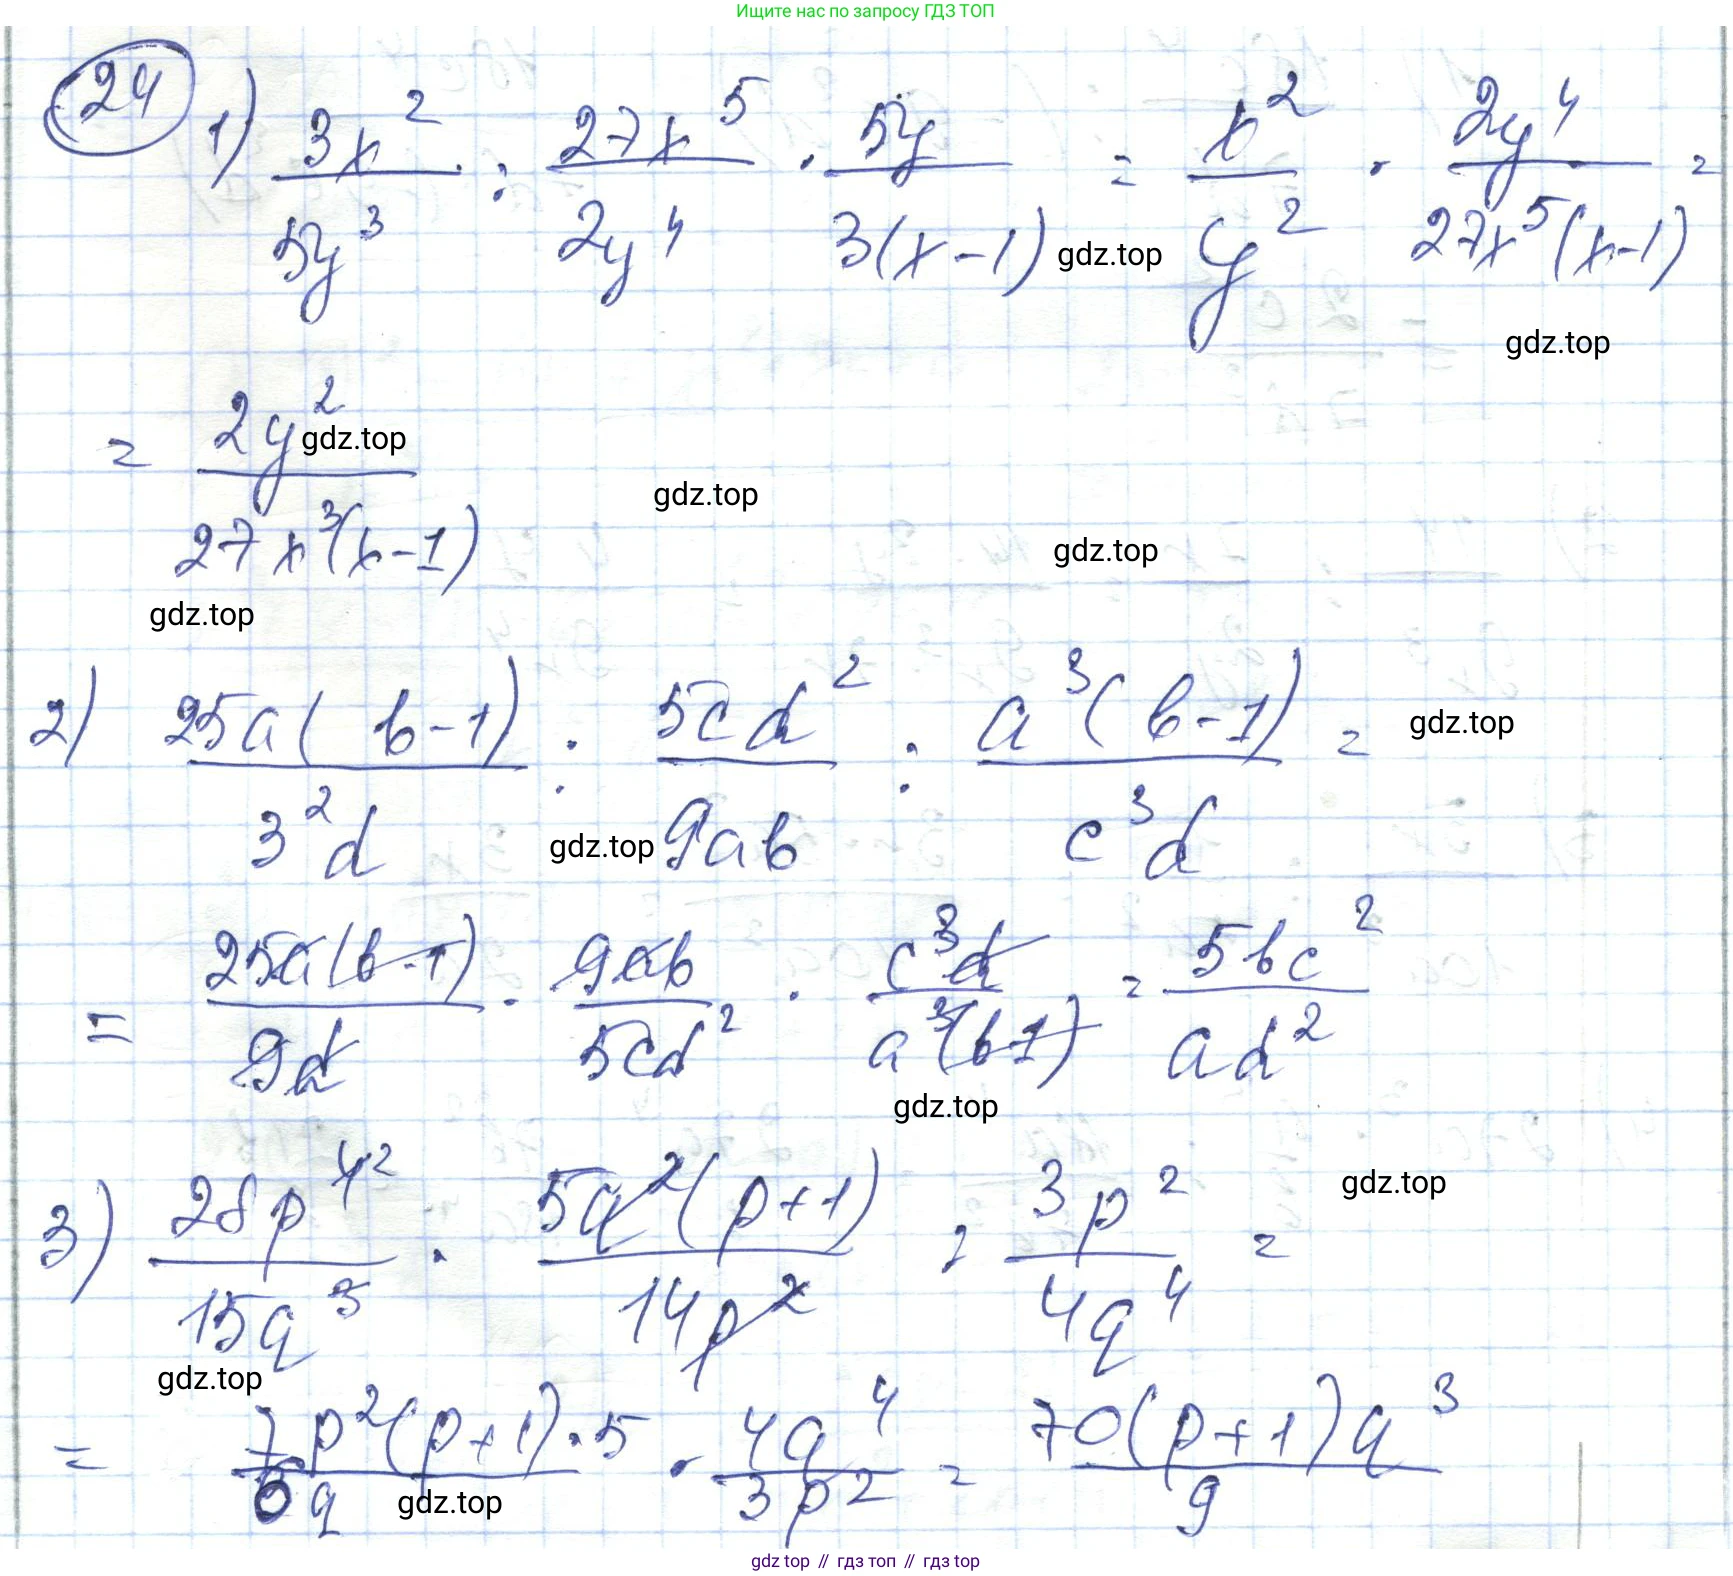 Ищите нас по запросу ГДЗ ТОП
24
1) 3x² / 5y³ : 27x⁵ / 2y⁴ · 5y / 3(x-1) = x² / y² · 2y⁴ / 27x⁵(x-1) =
gdz.top
gdz.top
= 2y² / 27x³(x-1)
gdz.top
gdz.top
gdz.top
gdz.top
2) 25a(b-1) / 3²d : 5cd² / 9ab : a³(b-1) / c³d =
gdz.top
gdz.top
= 25a(b-1) / 9d · 9ab / 5cd² · c³d / a³(b-1) = 5bc² / ad²
gdz.top
3) 28p⁴² / 15q³ · 5q²(p+1) / 14p² : 3p² / 4q⁴ =
gdz.top
gdz.top
= 7p²(p+1)·5 / 6q · 4q⁴ / 3p² = 70(p+1)q³ / 9
gdz.top
gdz top // гдз топ // гдз top